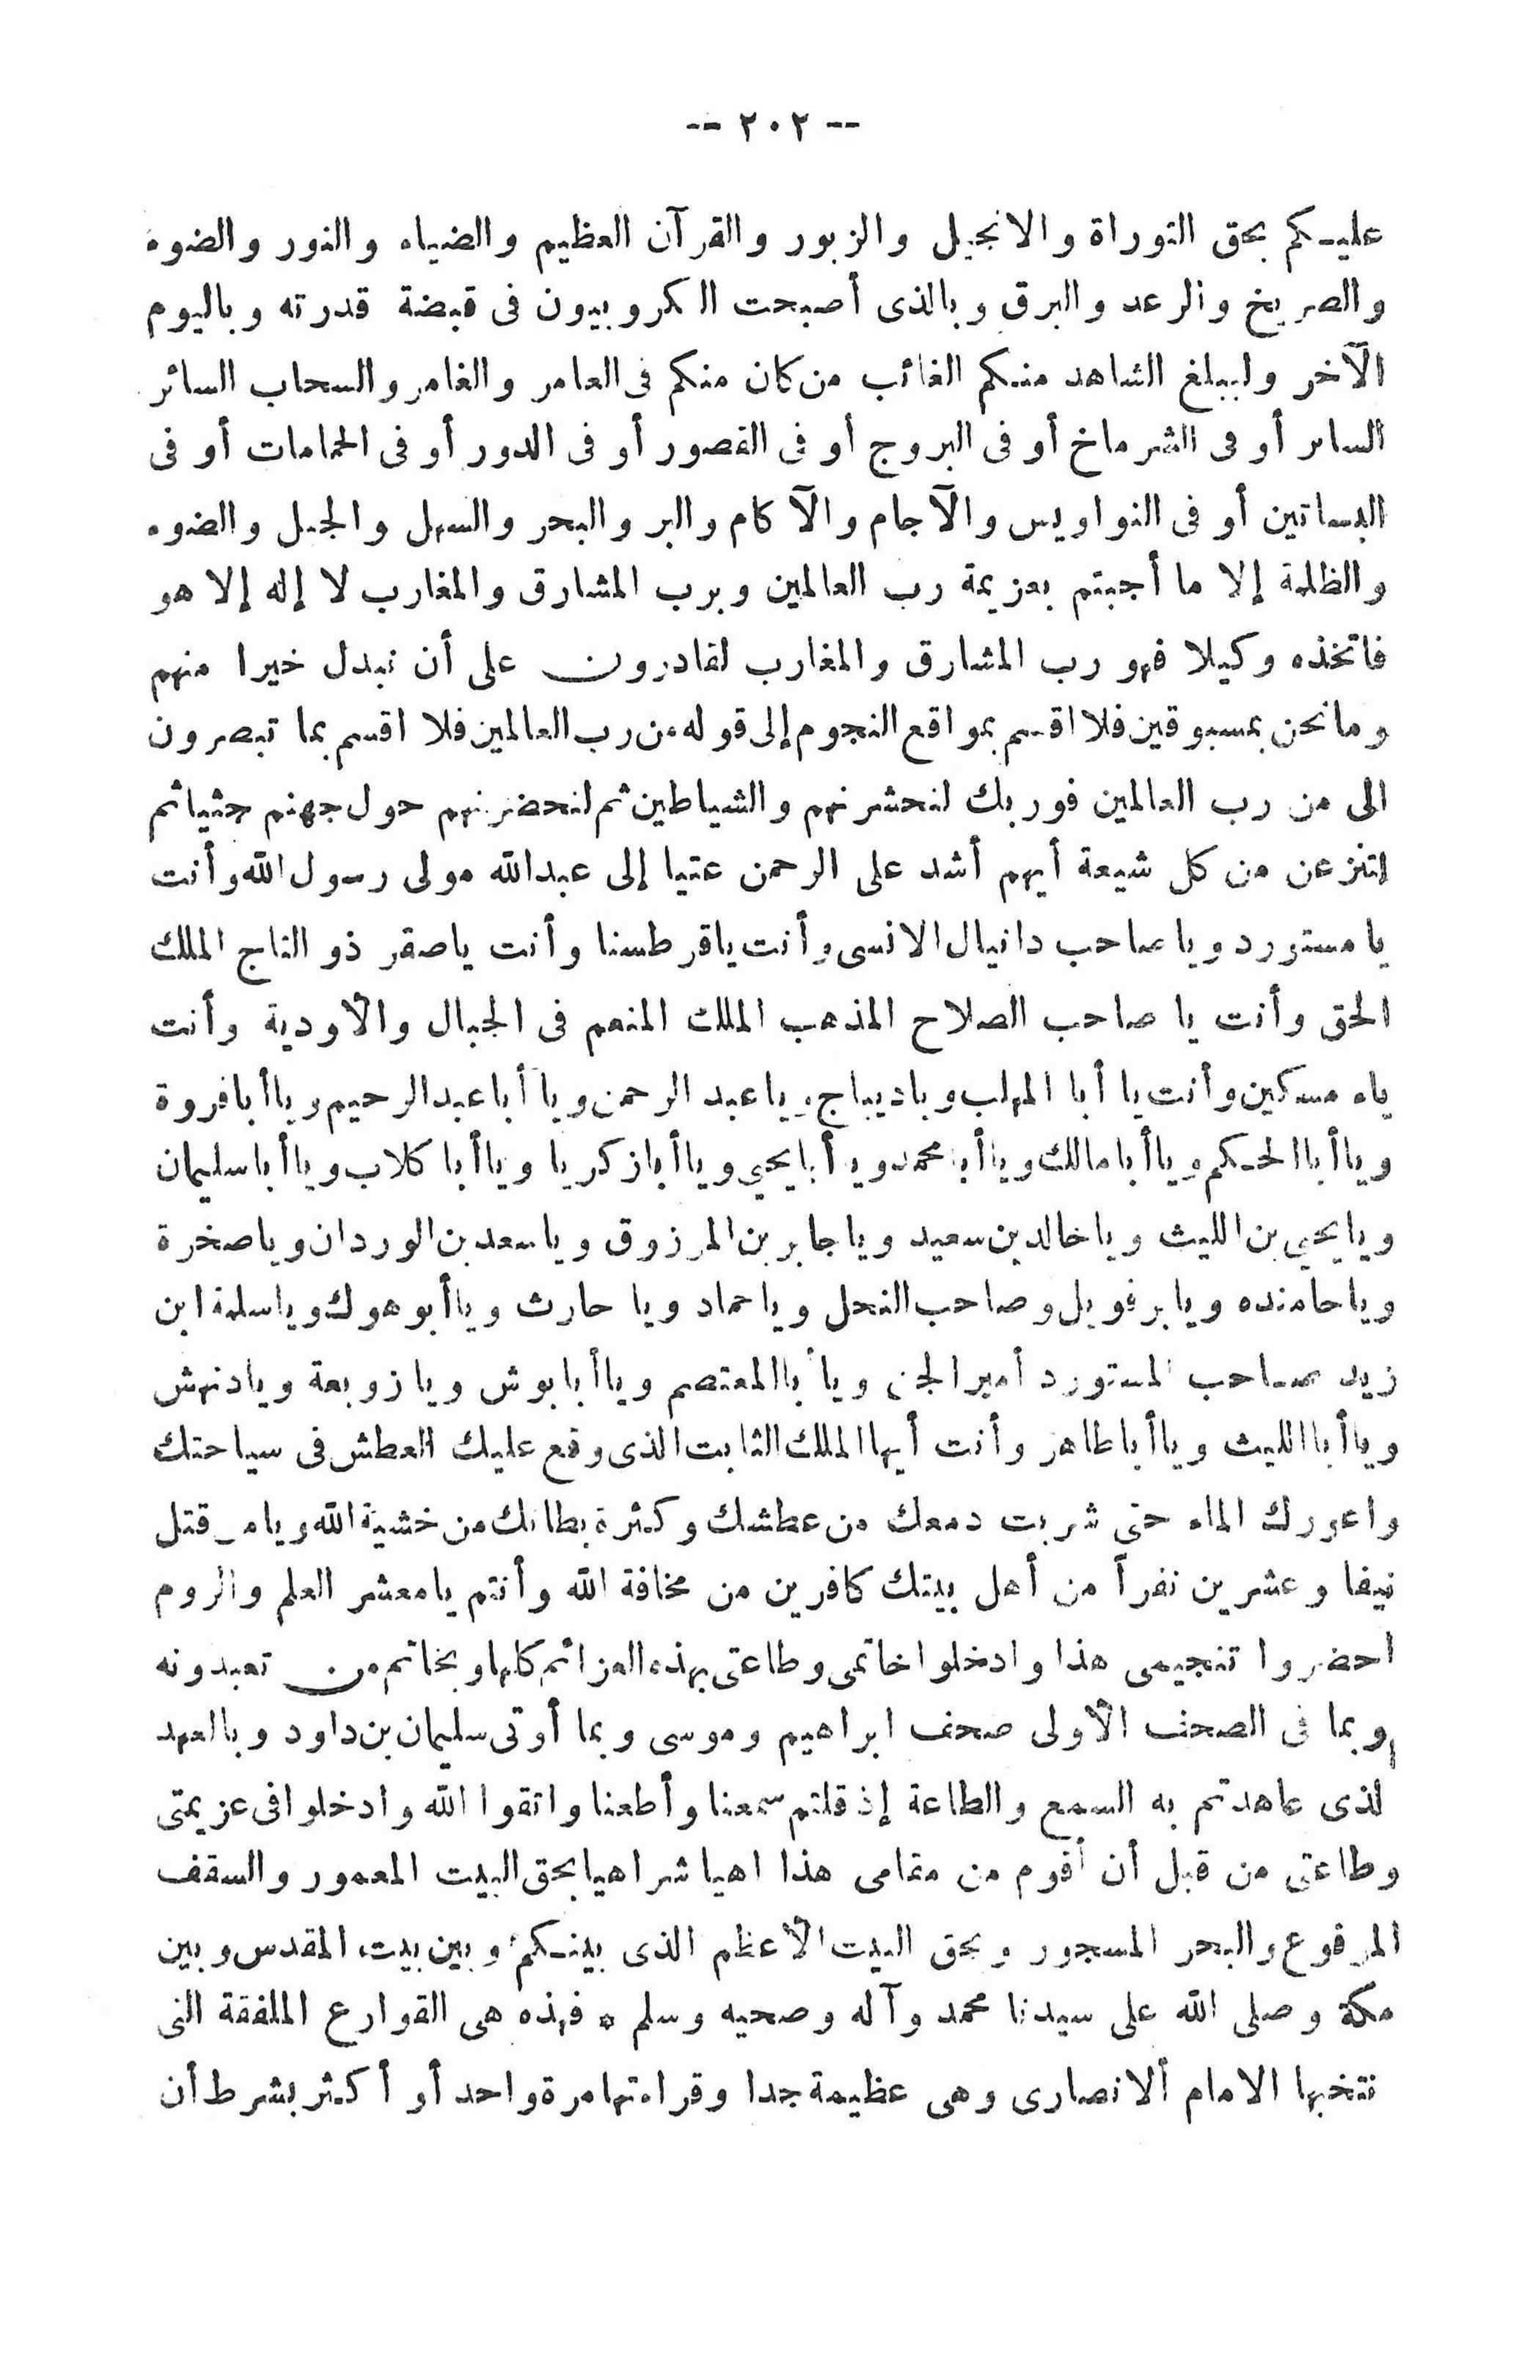 -- ٢٠٢ --
عليكم بحق التوراة والانجيل والزبور والقرآن العظيم والضياء والنور والضوء
والصريخ والرعد والبرق وبالذى أصبحت الكروبيون فى قبضة قدرته وباليوم
الآخر وليبلغ الشاهد منكم الغائب من كان منكم فى العامر والغامر والسحاب السائر
أو فى الشرماخ أو فى البروج أو فى القصور أو فى الدور أو فى الحمامات أو فى
البساتين أو فى النواويس والآجام والآكام والبر والبحر والسهل والجبل والضوء
والظلمة إلا ما أجبتم بعزيمة رب العالمين وبرب المشارق والمغارب لا إله إلا هو
فاتخذه وكيلا فهو رب المشارق والمغارب لقادرون على أن نبدل خيرا منهم
وما نحن بمسبوقين فلا اقسم بمواقع النجوم إلى قوله من رب العالمين فلا اقسم بما تبصرون
الى من رب العالمين فوربك لنحشرنهم والشياطين ثم لنحضرنهم حول جهنم جثيا ثم
لننزعن من كل شيعة أيهم أشد على الرحمن عتيا إلى عبدالله مولى رسول الله وأنت
يا مستورد ويا صاحب دانيال الانسى وأنت ياقرطسنا وأنت ياصقر ذو التاج الملك
الحق وأنت يا صاحب الصلاح المذهب الملك المنعم فى الجبال والأودية وأنت
ياء مسكين وأنت يا أبا المهلب وباديباج وياعبد الرحمن ويا أباعبدالرحيم ويا أبافروة
ويا أبا الحكم ويا أبا مالك ويا أبا محمد ويا أبا يحيى ويا أبا زكريا ويا أبا كلاب ويا أبا سليمان
ويا يحيى بن الليث ويا خالد بن سعيد ويا جابر بن المرزوق ويا سعد بن الوردان ويا صخرة
ويا حامنده ويا برفويل وصاحب النحل ويا حماد ويا حارث ويا أبو هوك ويا سلمة ابن
زيد صاحب المستورد أمير الجن ويا أبا المعتصم ويا أبا بوش ويا زوبعة ويا دنهش
ويا أبا الليث ويا أبا طاهر وأنت أيها الملك الثابت الذى وقع عليك العطش فى سياحتك
واعورك الماء حتى شربت دمعك من عطشك وكثرة بطانك من خشية الله ويا من قتل
نيفا وعشرين نفراً من أهل بيتك كافرين من مخافة الله وأنتم يا معشر العلم والروم
احضروا تنجيمى هذا وادخلوا خاتمى وطاعتى بهذه العزائم كلها وبخاتم من تعبدونه
وبما فى الصحف الأولى صحف ابراهيم وموسى وبما أوتى سليمان بن داود وبالعهد
لذى عاهدتم به السمع والطاعة إذ قلتم سمعنا وأطعنا واتقوا الله وادخلوا فى عزيمتى
وطاعتى من قبل أن أقوم من مقامى هذا اهيا شراهيا بحق البيت المعمور والسقف
المرفوع والبحر المسجور وبحق البيت الأعظم الذى بينكم وبين بيت المقدس وبين
مكة وصلى الله على سيدنا محمد وآله وصحبه وسلم * فهذه هى القوارع الملفقة التى
نتخبها الامام الانصارى وهى عظيمة جدا وقراءتها مرة واحد أو أكثر بشرط أن